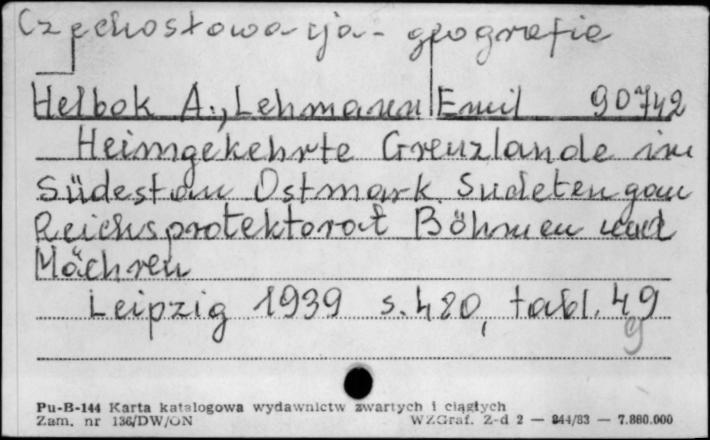 Czechosłowacja - geografie
Helbok A., Lehmann Emil 90742
Heimgekehrte Grenzlande im
Südestan Ostmark Sudetengau
Reichsprotektorat Böhmen und
Mächren
Leipzig 1939 s. 480, tabl. 49
9
Pu-B-144 Karta katalogowa wydawnictw zwartych i ciągłych
Zam. nr 136/DW/ON WZGraf. Z-d 2 — 844/83 — 7.880.000